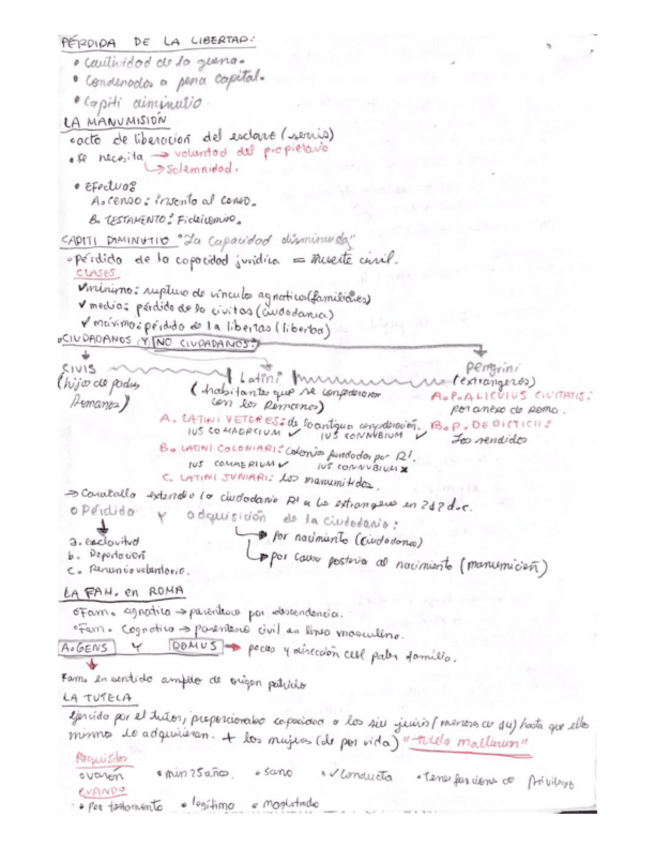 PÉRDIDA DE LA LIBERTAD:
• Cautividad de la guerra.
• Condenados a pena capital.
• Capiti diminutio.
LA MANUMISIÓN
• acto de liberación del esclavo (servis)
• se necesita → voluntad del propietario
↳ Solemnidad.
• EFECTUOS
A. CENSO: inscrito al censo.
B. TESTAMENTO: Fideicomiso.
CAPITI DIMINUTIO "La capacidad disminuida"
• pérdida de la capacidad jurídica = muerte civil.
CLASES
✓ mínima: ruptura de vínculo agnaticia (familiares)
✓ media: pérdida de la civitas (ciudadanía)
✓ máxima: pérdida de la libertas (libertad)
• CIUDADANOS Y NO CIUDADANOS:
CIVIS Latini Peregrini
(hijos de padres Romanos) (habitantes que se confederaron con los Romanos) (extrangeros)
A. LATINI VETERES: de la antigua confederación. A. P. ALICUIUS CIVITATIS: por anexo de Roma.
IUS COMMERCIUM ✓ IUS CONNUBIUM ✓ B. P. DEDICTICII: Los rendidos
B. LATINI COLONIARI: Colonias fundadas por Rª.
IUS COMMERIUM ✓ IUS CONNUBIUM ✗
C. LATINI JUNIARI: los manumitidos.
→ Caracalla extendió la ciudadanía Rª a los extrangeros en 212 d.c.
• Pérdida y adquisición de la ciudadanía:
a. esclavitud → por nacimiento (ciudadanos)
b. Deportación → por causa posterior al nacimiento (manumición)
c. Renuncia voluntaria.
LA FAM. en ROMA
• Fam. agnatica → parentesco por descendencia.
• Fam. Cognatica → parentesco civil en línea masculina.
A. GENS Y DOMUS → poder y dirección del pater familia.
Fam. en sentido amplio de origen patricio
LA TUTELA
Ejercida por el tutor, proporcionaba capacidad a los sui iuris (menores de 14) hasta que ellos
mismos la adquirieran. + las mujeres (de por vida) "tutela mulierum"
Requisitos
• varón • min 25 años. • sano • ✓ Conducta • tener funciones de privilegio
CUANDO
• por testamento • legítimo • magistrado